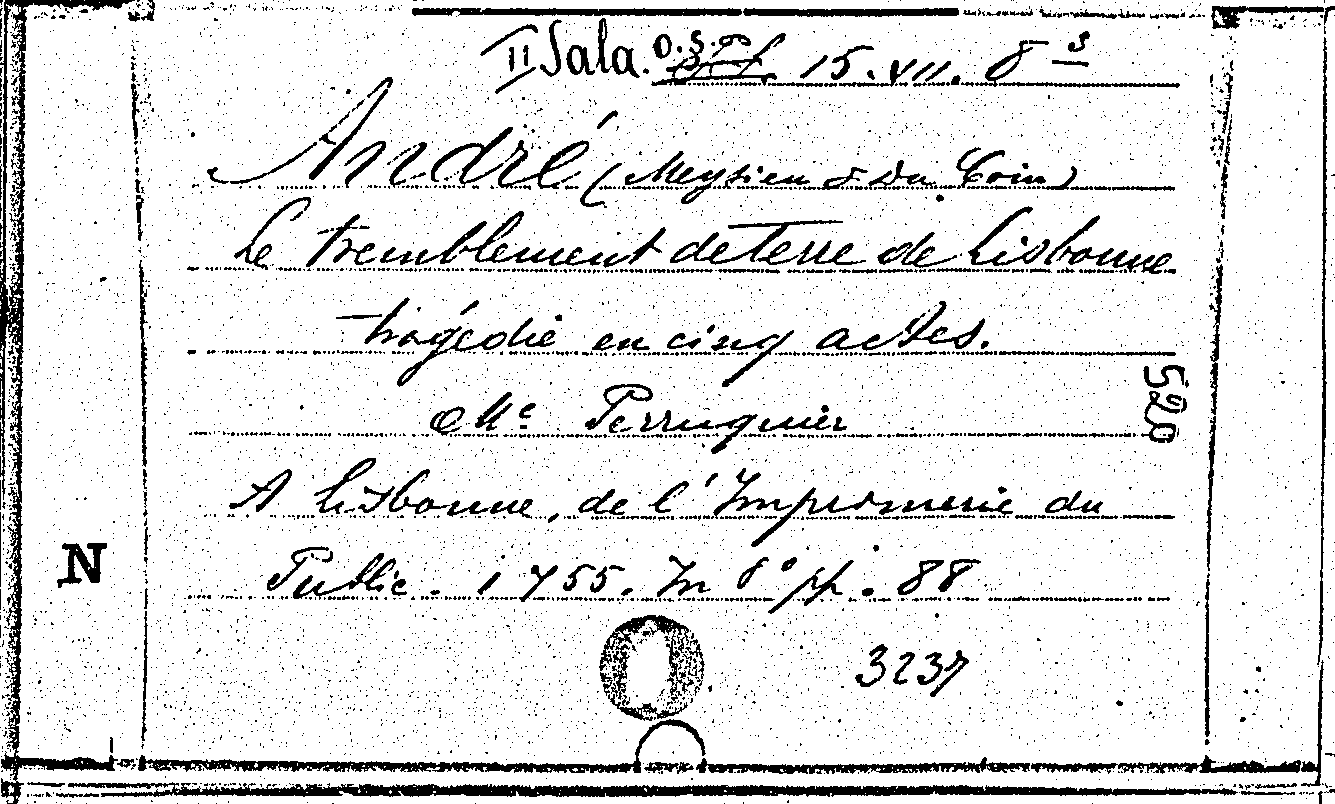 II Sala. O.S. 15. VII. 8 s
André (Meysieu &
Le tremblement de Terre de Lisbonne
tragédie en cinq actes.
Me. Perruquier
520
A Lisbonne, de l'Imprimerie du
N
Public. 1755. In 8º pp. 88
3237